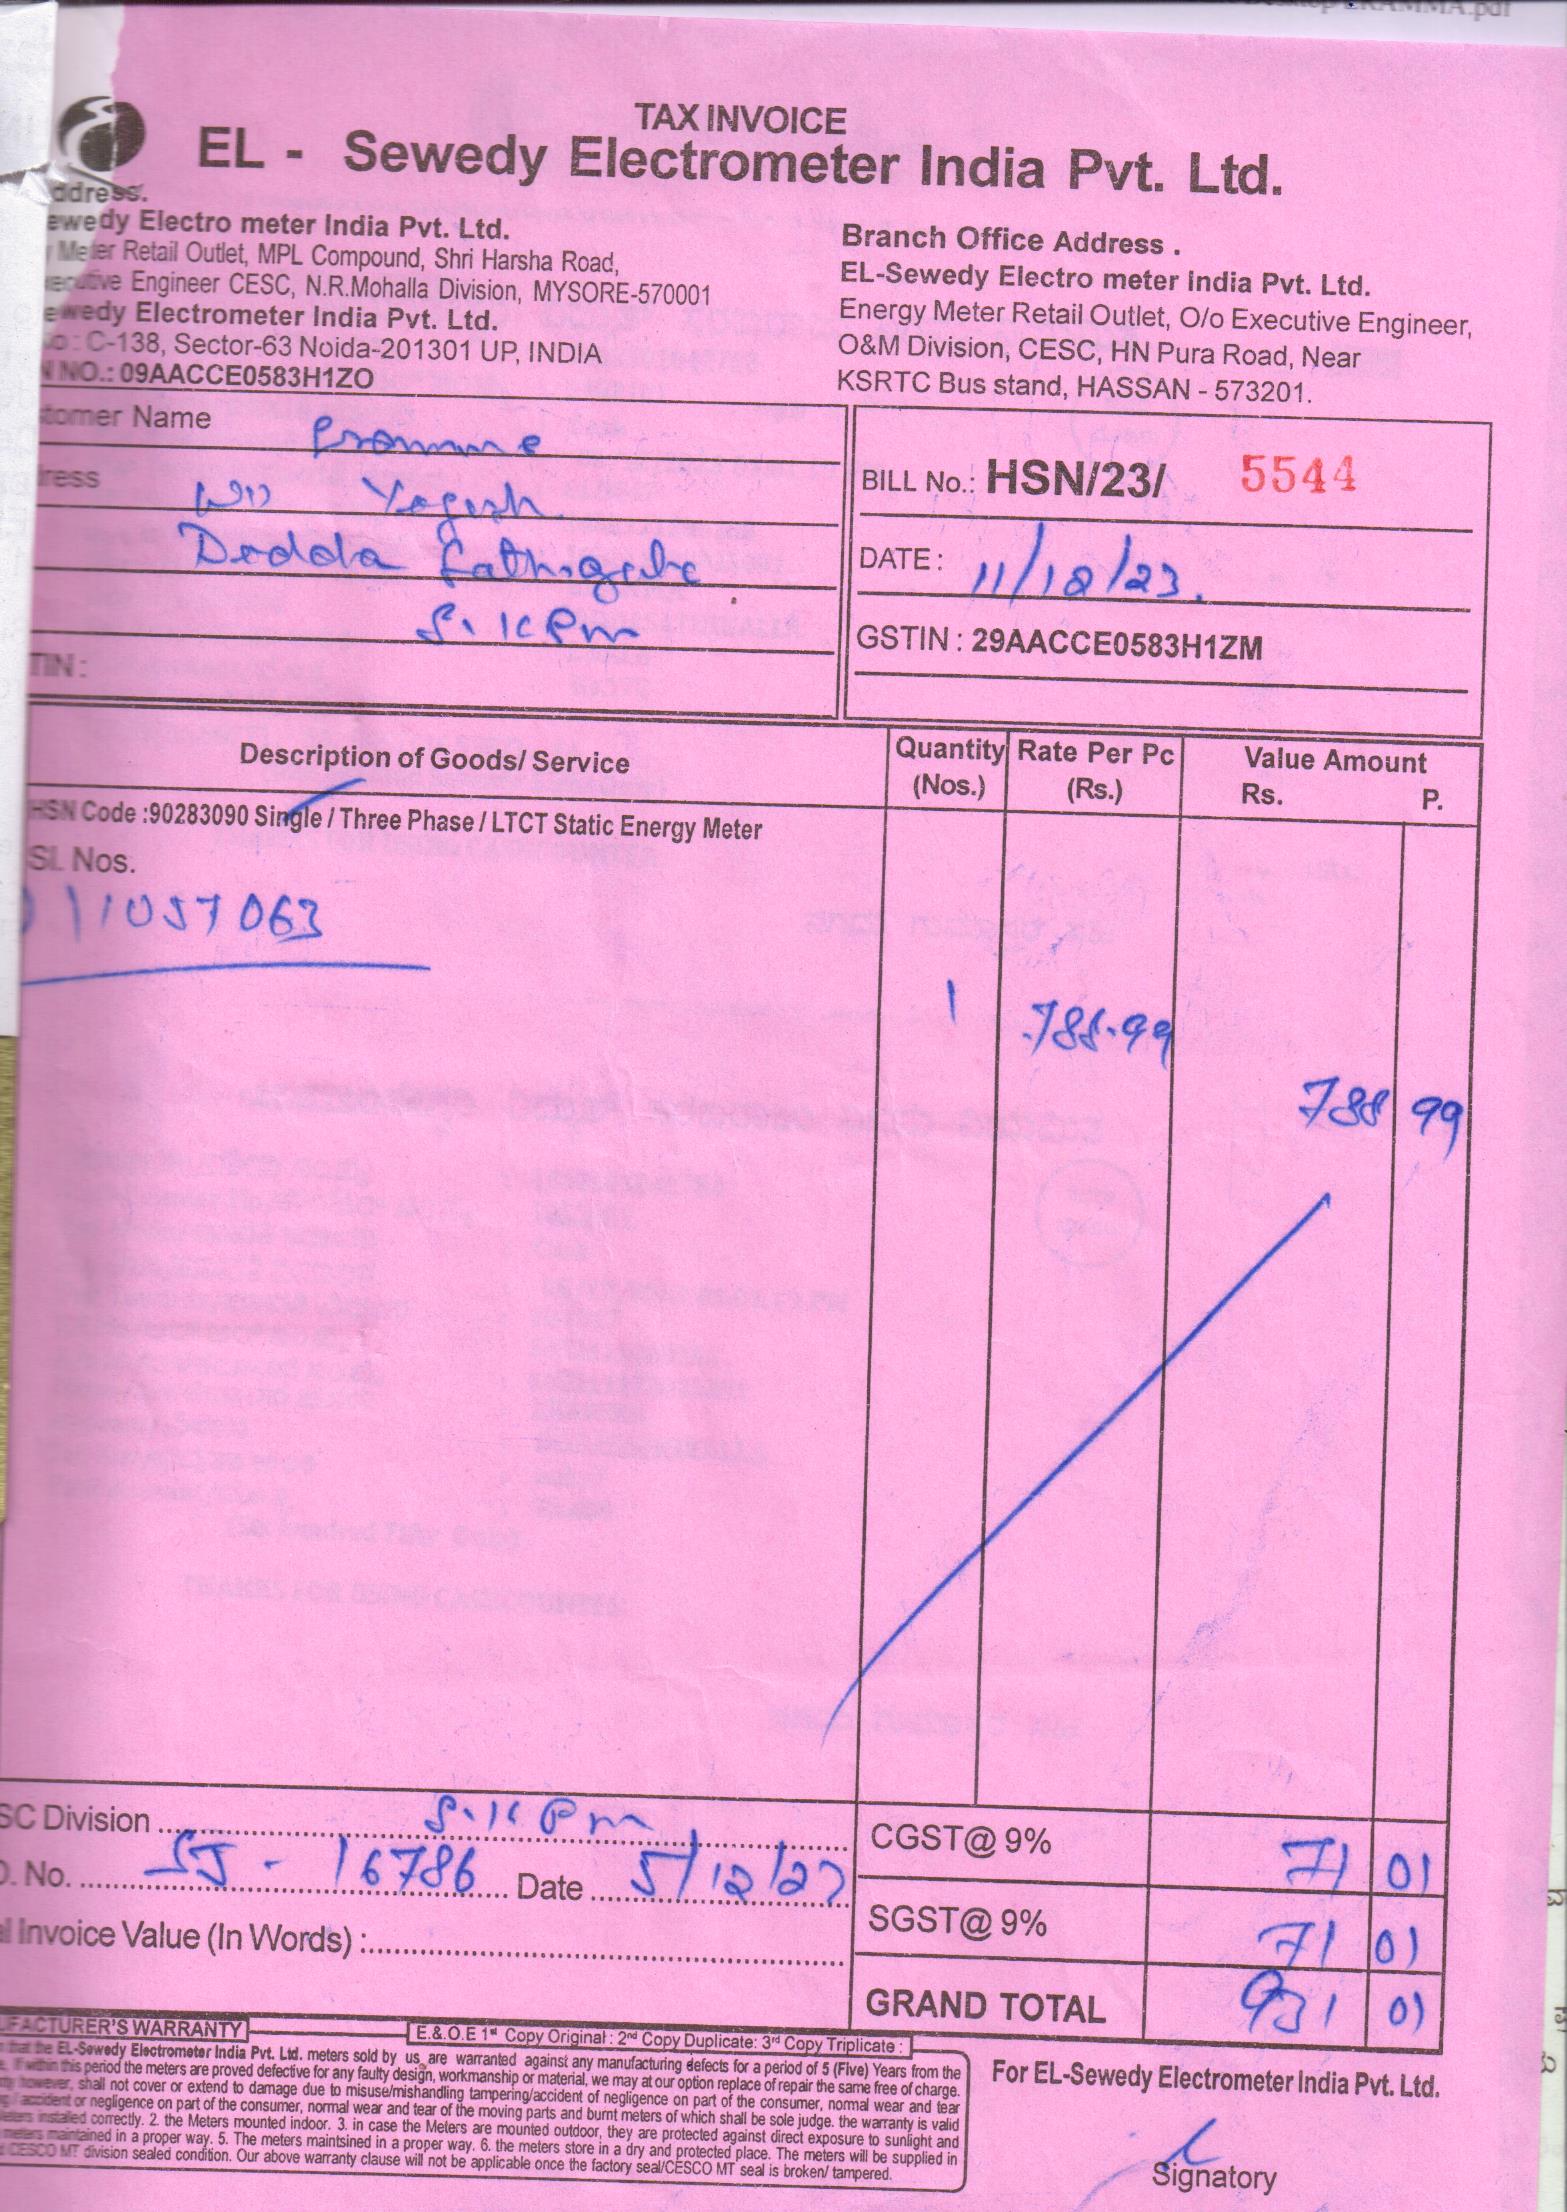 TAX INVOICE
EL - Sewedy Electrometer India Pvt. Ltd.
ddress.
ewedy Electro meter India Pvt. Ltd.
Meter Retail Outlet, MPL Compound, Shri Harsha Road,
ecutive Engineer CESC, N.R.Mohalla Division, MYSORE-570001
ewedy Electrometer India Pvt. Ltd.
C-138, Sector-63 Noida-201301 UP, INDIA
N NO.: 09AACCE0583H1ZO
Branch Office Address .
EL-Sewedy Electro meter India Pvt. Ltd.
Energy Meter Retail Outlet, O/o Executive Engineer,
O&M Division, CESC, HN Pura Road, Near
KSRTC Bus stand, HASSAN - 573201.
tomer Name
ress Yogesh
Dodda
S. K Pm
TIN :
BILL No.: HSN/23/ 5544
DATE : 11/12/23.
GSTIN : 29AACCE0583H1ZM
Description of Goods/ Service Quantity (Nos.) Rate Per Pc (Rs.) Value Amount Rs. P.
HSN Code :90283090 Single / Three Phase / LTCT Static Energy Meter
Sl. Nos.
11057063
1 788.99
788 99
SC Division S. K Pm
O. No. SJ - 16786 Date 5/12/23
l Invoice Value (In Words) :
CGST@ 9% 71 01
SGST@ 9% 71 01
GRAND TOTAL 931 01
UFACTURER'S WARRANTY
E.& O.E 1st Copy Original : 2nd Copy Duplicate: 3rd Copy Triplicate :
that the EL-Sewedy Electrometer India Pvt. Ltd. meters sold by us, are warranted against any manufacturing defects for a period of 5 (Five) Years from the
If within this period the meters are proved defective for any faulty design, workmanship or material, we may at our option replace of repair the same free of charge.
however, shall not cover or extend to damage due to misuse/mishandling tampering/accident of negligence on part of the consumer, normal wear and tear
/ accident or negligence on part of the consumer, normal wear and tear of the moving parts and burnt meters of which shall be sole judge. the warranty is valid
installed correctly. 2. the Meters mounted indoor. 3. in case the Meters are mounted outdoor, they are protected against direct exposure to sunlight and
maintained in a proper way. 5. The meters maintsined in a proper way. 6. the meters store in a dry and protected place. The meters will be supplied in
CESCO MT division sealed condition. Our above warranty clause will not be applicable once the factory seal/CESCO MT seal is broken/ tampered.
For EL-Sewedy Electrometer India Pvt. Ltd.
Signatory